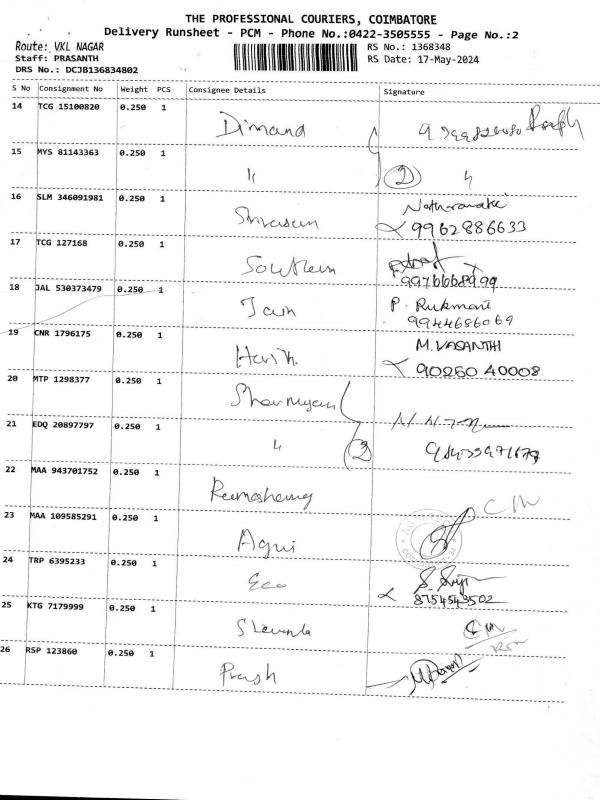 THE PROFESSIONAL COURIERS, COIMBATORE
Delivery Runsheet - PCM - Phone No.:0422-3505555 - Page No.:2
Route: VKL NAGAR
RS No.: 1368348
Staff: PRASANTH
RS Date: 17-May-2024
DRS No.: DCJB136834802
S No Consignment No Weight PCS Consignee Details Signature
14 TCG 15100820 0.250 1 Dimand
15 MYS 81143363 0.250 1 " 2 "
16 SLM 346091981 0.250 1
9962886633
17 TCG 127168 0.250 1 Southern
18 JAL 530373479 0.250 1 Jain P. Rukmani
9944686069
19 CNR 1796175 0.250 1 Harish. M.VASANTHI
90260 40008
20 MTP 1298377 0.250 1
21 EDQ 20897797 0.250 1 " 2
22 MAA 943701752 0.250 1
23 MAA 109585291 0.250 1 Agni
24 TRP 6395233 0.250 1 Eco
8754543502
25 KTG 7179999 0.250 1
26 RSP 123860 0.250 1